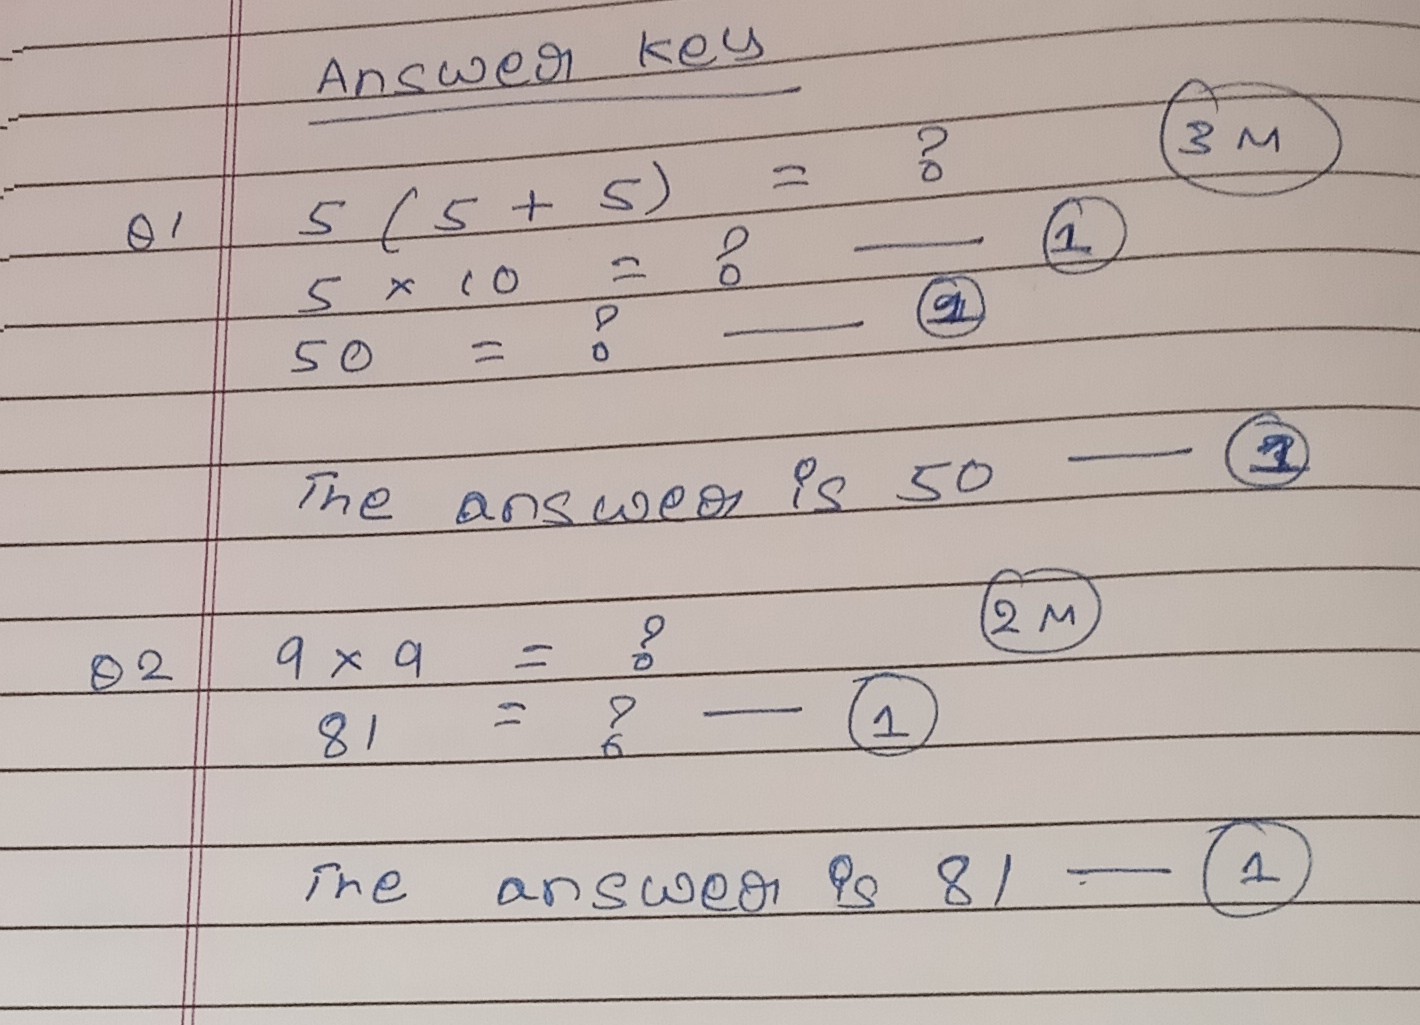 Answer key
3 M
Q1 5 (5 + 5) = ?
5 × 10 = ? — 1
50 = ? —
The answer is 50 —
2 M
Q2 9 × 9 = ?
81 = ? — 1
The answer is 81 — 1